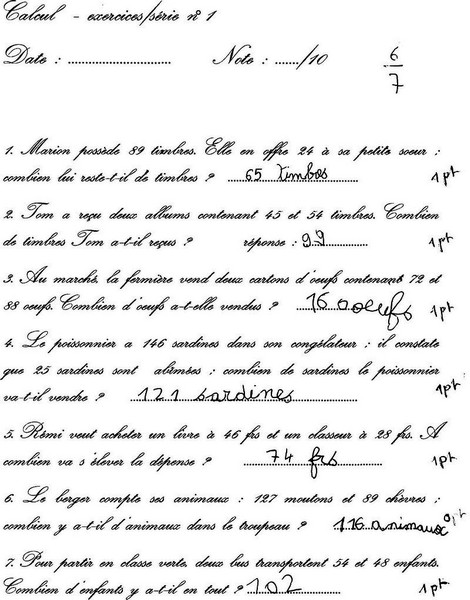 Calcul - exercices/série n° 1
Date : ........................... Note : ....../10 6/7
1. Marion possède 89 timbres. Elle en offre 24 à sa petite soeur :
combien lui reste-t-il de timbres ? 65 timbres 1 pt
2. Tom a reçu deux albums contenant 45 et 54 timbres. Combien
de timbres Tom a-t-il reçus ? réponse : 99 1pt
3. Au marché, la fermière vend deux cartons d'oeufs contenant 72 et
88 oeufs. Combien d'oeufs a-t-elle vendus ? 160 oeufs 1pt
4. Le poissonnier a 146 sardines dans son congélateur : il constate
que 25 sardines sont abîmées : combien de sardines le poissonnier
va-t-il vendre ? 121 sardines 1pt
5. Rémi veut acheter un livre à 46 frs et un classeur à 28 frs. A
combien va s'élever la dépense ? 74 frs 1pt
6. Le berger compte ses animaux : 127 moutons et 89 chèvres :
combien y a-t-il d'animaux dans le troupeau ? 116 animaux 0pt
7. Pour partir en classe verte, deux bus transportent 54 et 48 enfants.
Combien d'enfants y a-t-il en tout ? 102 1 pt